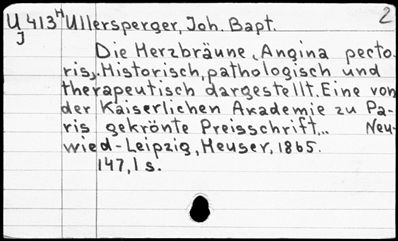 U 413ᴴ Ullersperger, Joh. Bapt. 2
J
Die Herzbräune, Angina pecto-
ris,. Historisch, pathologisch und
therapeutisch dargestellt. Eine von
der Kaiserlichen Akademie zu Pa-
ris gekrönte Preisschrift,.. Neu-
wied-Leipzig, Heuser, 1865.
147,1 s.